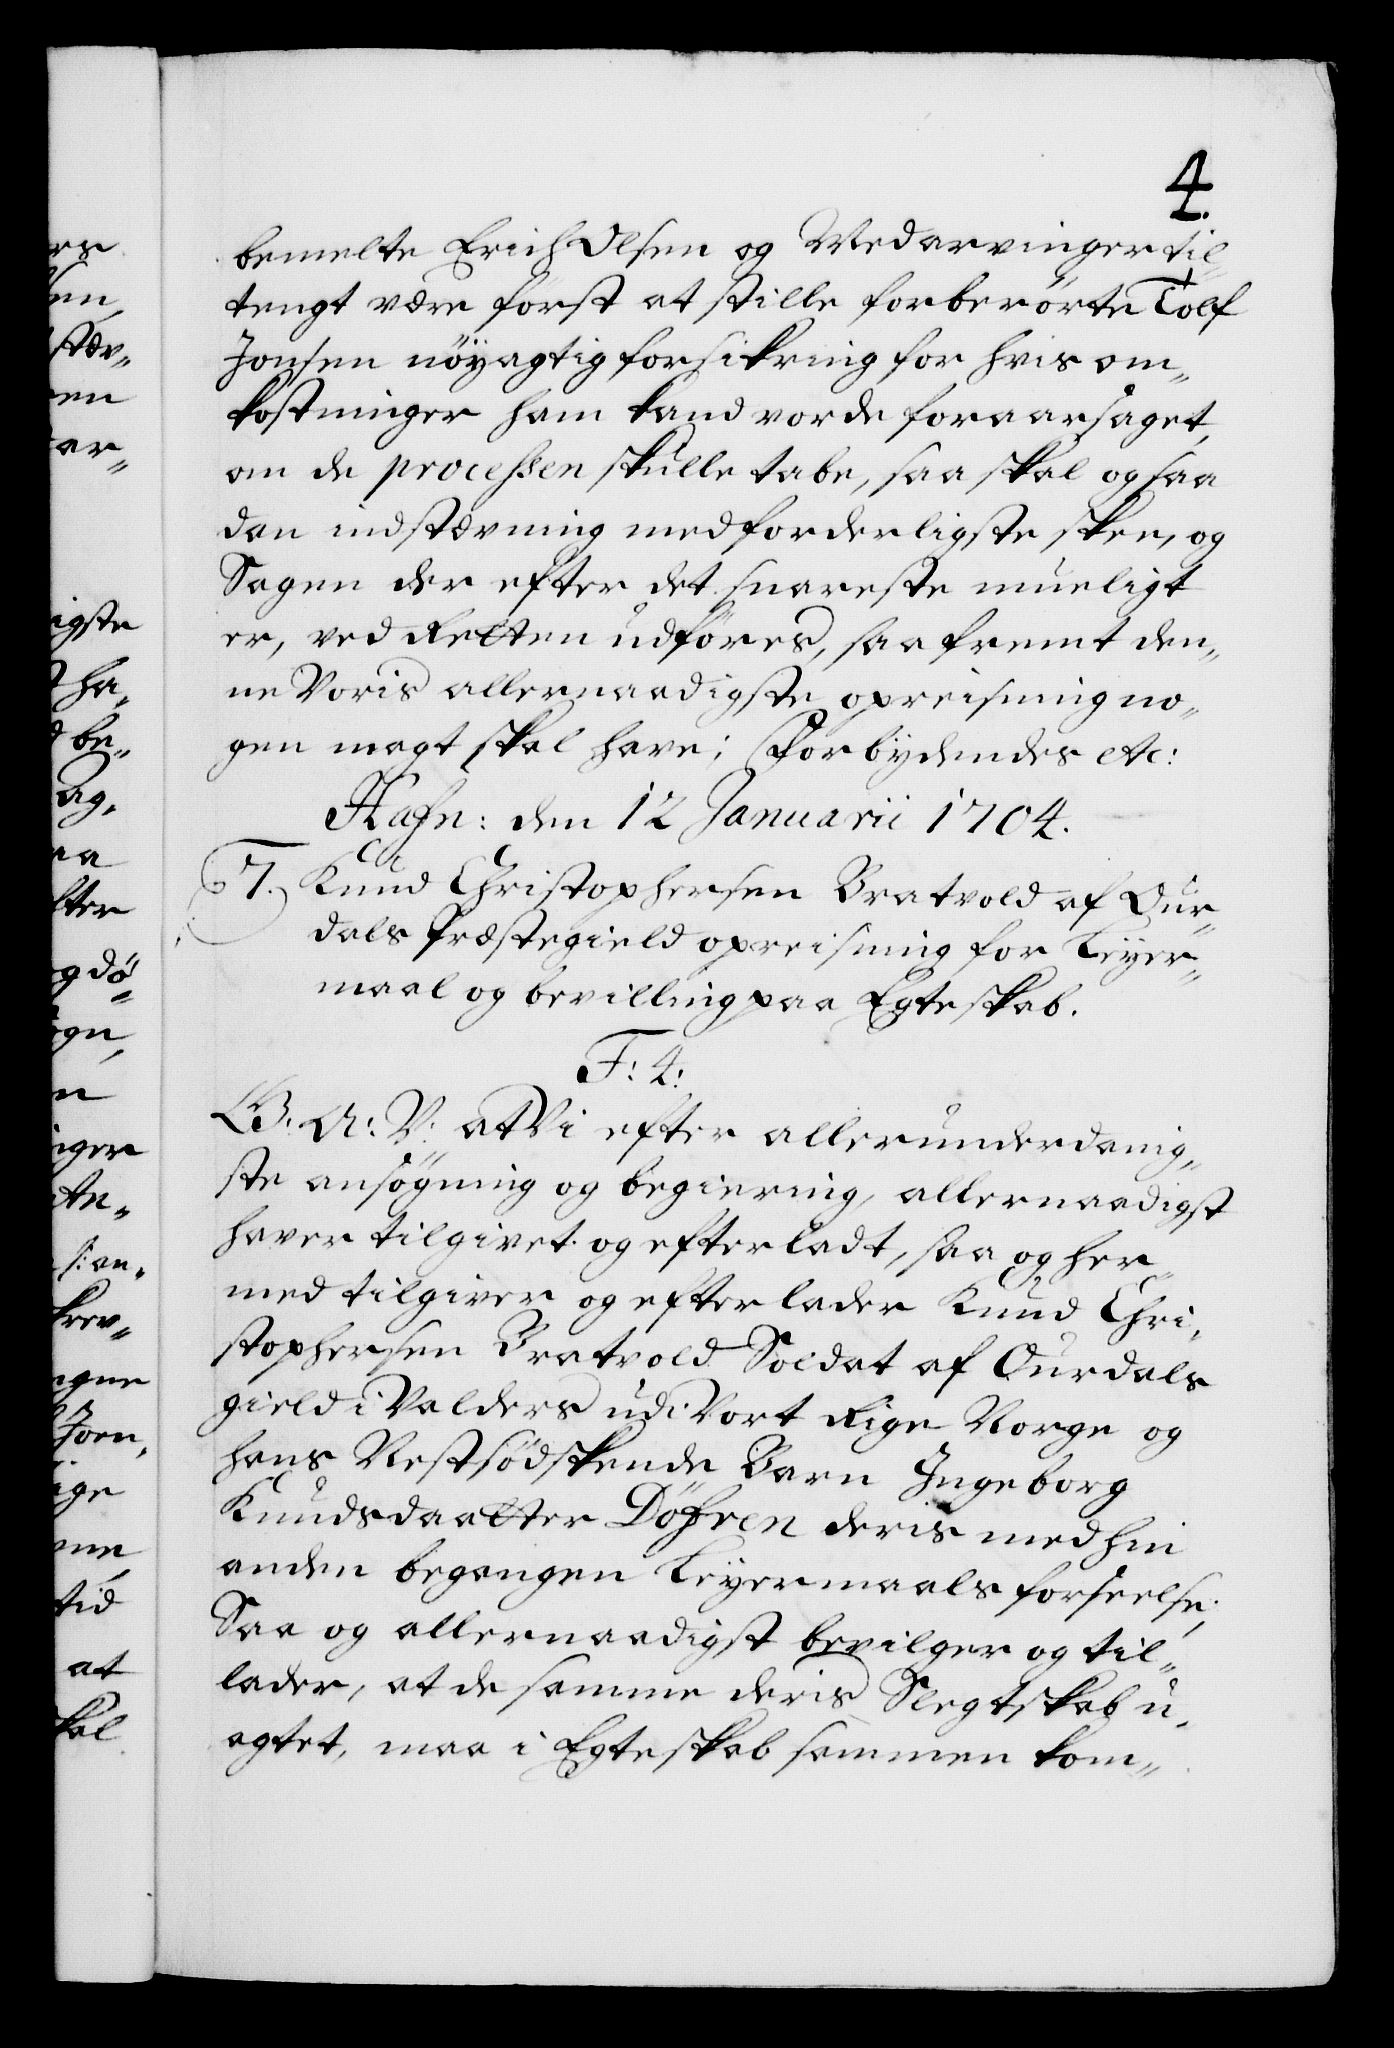 4.
bemelte Erich Olsen og Medarvinger til„
tengt være først at stille forberørte Tolf
Jonsen nöyagtig forsikring for hvis om„
kostninger ham kand vorde foraarsaget,
om de processen skulle tabe, saa skal og saa
dan indstævning med forderligste skee, og
Sagen der efter det snareste mueligt
er, ved Retten udföres, saa fremt den„
ne Voris allernaadigste opreisning no„
gen magt skal have; Forbydendes etc:
Hafn: den 12 Januarii 1704.
7. Knud Christophersen Bratvold af Our„
dals Præstegield opreisning for Leyer„
maal og bevilling paa Egteskab.
F: 4:
G. A: V: at Vi efter allerunderdanig„
ste ansögning og begiering, allernaadigst
haver tilgivet og efterladt, saa og her„
med tilgiver og efterlader Knud Chri„
stophersen Bratvold Soldat af Ourdals
gield i Valders udi Vort Rige Norge og
hans Nestsödskende Barn Ingeborg
Knudsdaatter Döfren deris med hin
anden begangen Leyermaals forseelse;
Saa og allernaadigst bevilger og til„
lader, at de samme deris Slegtskab u„
agtet, maa i Egteskab sammen kom„